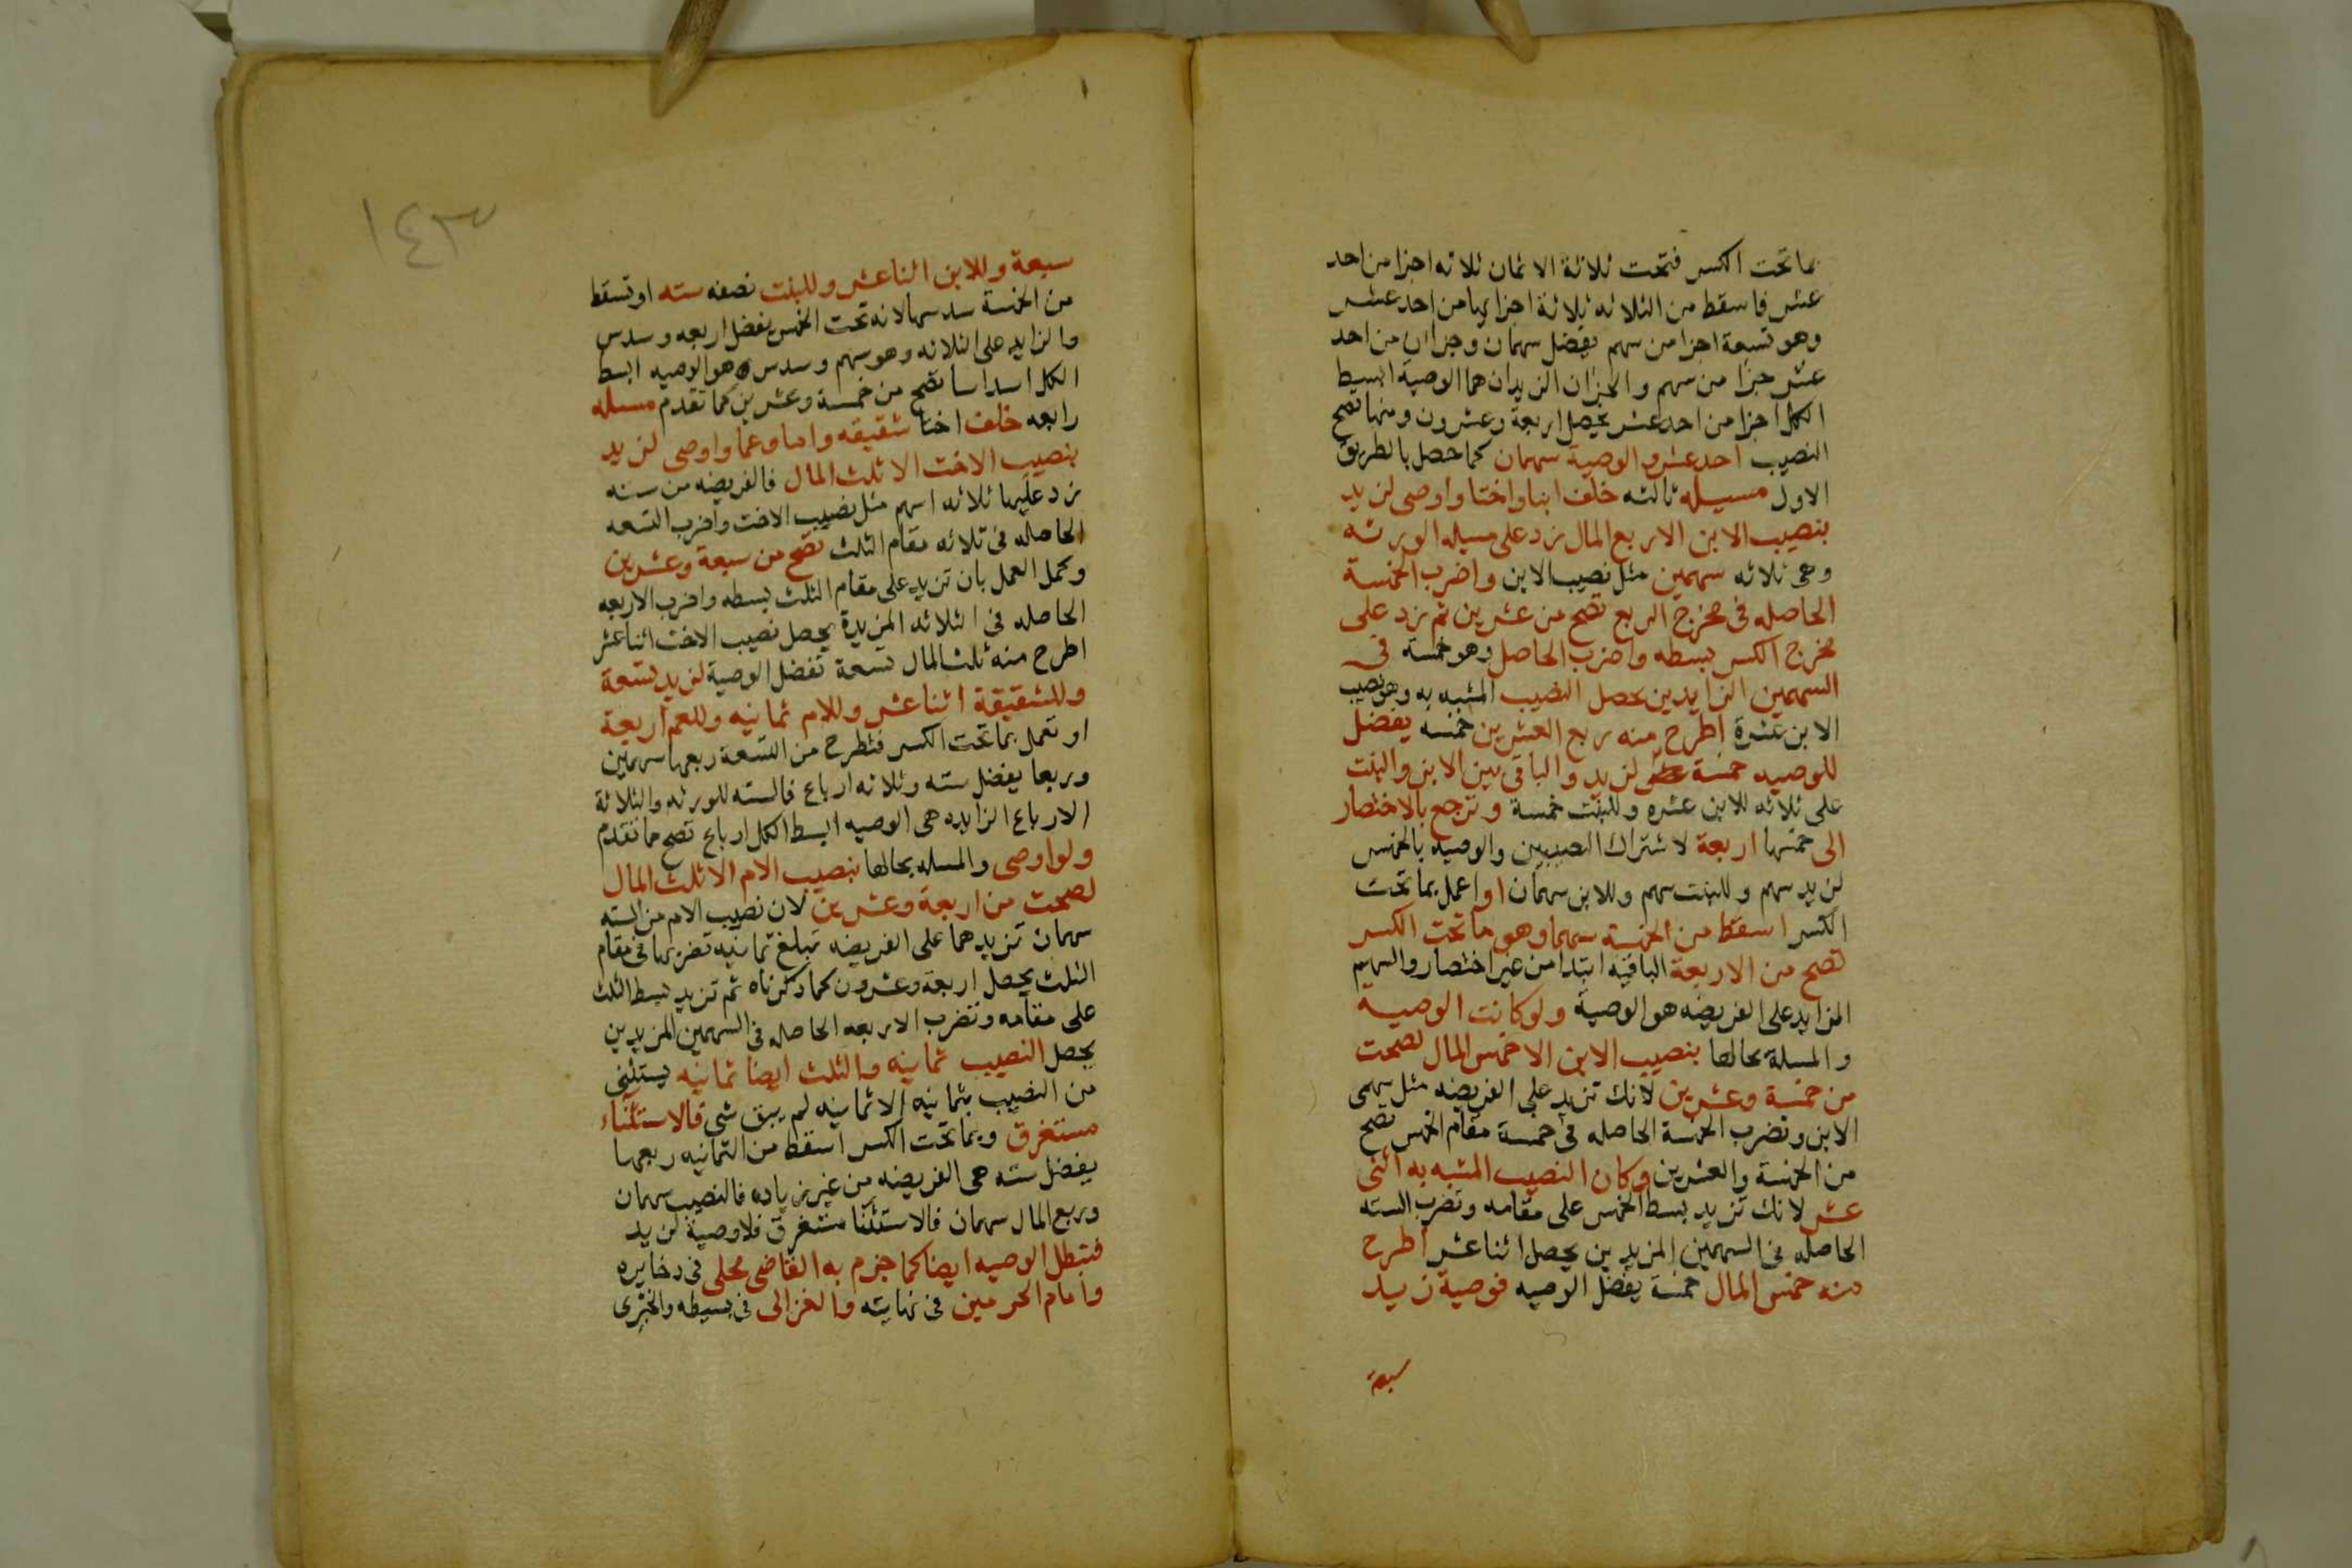 بما تحت الكسر فتحت ثلاثة الاثمان ثلاثه اجزا من احد
عشر فاسقط من الثلاثه ثلاثة اجزايها من احد عشر
وهو تسعة اجزا من سهم يفضل سهمان وجزاان من احد
عشر جزا من سهم والجزان الزيدان هما الوصية ابسط
الكل اجزا من احد عشر يحصل اربعة وعشرون ومنها تصح
النصيب احد عشر والوصية سهمان كما حصل بالطريق
الاول مسيله ثالثه خلف ابنا واختا واوصى لزيد
بنصيب الابن الا ربع المال زد على مسيله الورثه
وهى ثلاثه سهمين مثل نصيب الابن واضرب الخمسة
الحاصله فى مخرج الربع تصح من عشرين ثم زد على
مخرج الكسر بسطه واضرب الحاصل وهو خمسة فى
السهمين الزايدين يحصل النصيب المشبه به وهو نصيب
الابن عشرة اطرح منه ربع العشرين خمسه يفضل
للوصيه خمسة لزيد والباقى بين الابن والبنت
على ثلاثه للابن عشره وللبنت خمسة وترجع بالاختصار
الى خمسها اربعة لاشتراك النصيبين والوصيه بالخمس
لزيد سهم وللبنت سهم وللابن سهمان او اعمل بما تحت
الكسر اسقط من الخمسه سهما وهو ما تحت الكسر
تصح من الاربعة الباقيه ابتدا من غير اختصار والسهم
المزايد على الفريضه هو الوصية ولو كانت الوصيه
والمسلة بحالها بنصيب الابن الا خمس المال لصحت
من خمسة وعشرين لانك تزيد على الفريضه مثل سهمى
الابن وتضرب الخمسة الحاصله فى خمسة مقام الخمس تصح
من الخمسة والعشرين وكان النصيب المشبه به اثنى
عشر لانك تزيد بسط الخمس على مقامه وتضرب السته
الحاصله فى السهمين المزيدين يحصل اثنا عشر اطرح
منه خمس المال خمسة يفضل الوصيه فوصية زيد
سبعة
١٤٣
سبعة وللابن اثنا عشر وللبنت نصفه سته او تسقط
من الخمسة سدسها لانه تحت الخمس يفضل اربعه وسدس
والزايد على الثلاثه وهو سهم وسدس هو الوصيه ابسط
الكل اسداسا تصح من خمسة وعشرين كما تقدم مسيله
رابعه خلف اختا شقيقه واما وعما واوصى لزيد
بنصيب الاخت الا ثلث المال فالفريضه من سته
زد عليها ثلاثه اسهم مثل نصيب الاخت واضرب التسعه
الحاصله فى ثلاثه مقام الثلث تصح من سبعة وعشرين
وكمل العمل بان تزيد على مقام الثلث بسطه واضرب الاربعه
الحاصله فى الثلاثه المزيدة يحصل نصيب الاخت اثنا عشر
اطرح منه ثلث المال تسعة تفضل الوصية لزيد تسعة
وللشقيقة اثنا عشر وللام ثمانيه وللعم اربعة
او تعمل بما تحت الكسر فتطرح من التسعة ربعها سهمين
وربعا يفضل سته وثلاثه ارباع فالسته للورثه والثلاثة
الارباع الزايده هى الوصيه ابسط الكل ارباع تصح مما تقدم
ولو اوصى والمسله بحالها بنصيب الام الا ثلث المال
لصحت من اربعة وعشرين لان نصيب الام من السته
سهمان تزيدهما على الفريضه تبلغ ثمانيه تضربها فى مقام
الثلث يحصل اربعة وعشرون كما ذكرناه ثم تزيد بسط الثلث
على مقامه وتضرب الاربعه الحاصله فى السهمين المزيدين
يحصل النصيب ثمانيه والثلث ايضا ثمانيه يستثنى
من النصيب بثمانيه الا ثمانيه لم يبق شى فالاستثناء
مستغرق وبما تحت الكسر اسقط من الثمانيه ربعها
يفضل سته هى الفريضه من غير زياده فالنصيب سهمان
وربع المال سهمان فالاستثنا مستغرق فلا وصية لزيد
فتبطل الوصيه ايضا كما جزم به القاضى مجلى فى دخايره
وامام الحرمين فى نهايته والغزالى فى بسيطه والخبرى